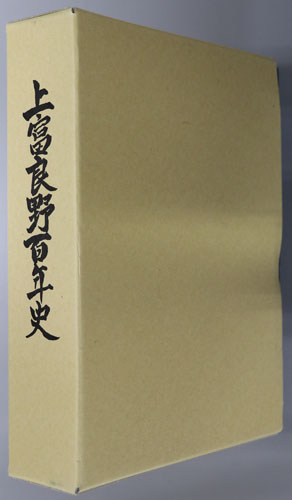 上富良野百年史